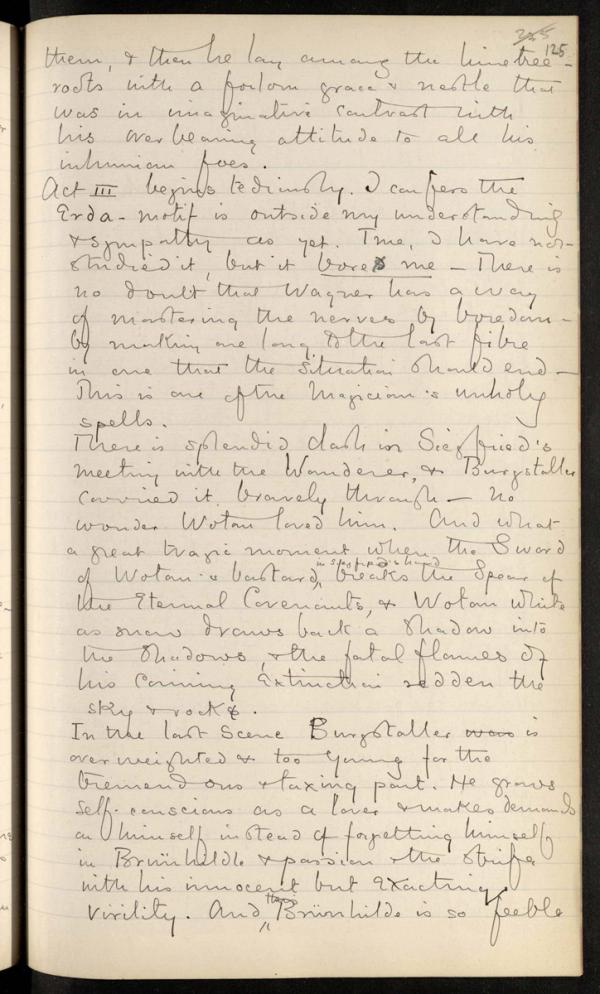 225
125
them, & then he lay among the lime tree-
roots with a forlorn grace & nestle that
was in imaginative contrast with
his overbearing attitude to all his
inhuman foes.
Act III begins tediously. I confess the
Erda-motif is outside my understanding
& sympathy as yet. True, I have not
studied it, but it bores me — There is
no doubt that Wagner has a way
of mastering the nerves by boredom —
by making one long to the last fibre
in one that the situation should end —
This is one of the Magician's unholy
spells.
There is splendid dash in Siegfried's
meeting with the Wanderer, & Burgstaller
carried it bravely through — no
wonder Wotan loved him. And what
a great tragic moment when the Sword
in Siegfried's hand
of Wotan's bastard, breaks the Spear of
the Eternal Covenants, & Wotan white
as snow draws back a shadow into
the shadows, & the fatal flames of
his coming Extinction redden the
sky & rocks.
In the last scene Burgstaller was is
overweighted & too young for the
tremendous & taxing part. He grows
self-conscious as a lover & makes demands
on himself instead of forgetting himself
in Brünhilde & passion & the strife
with his innocent but exacting
virility. And, Brünhilde is so feeble